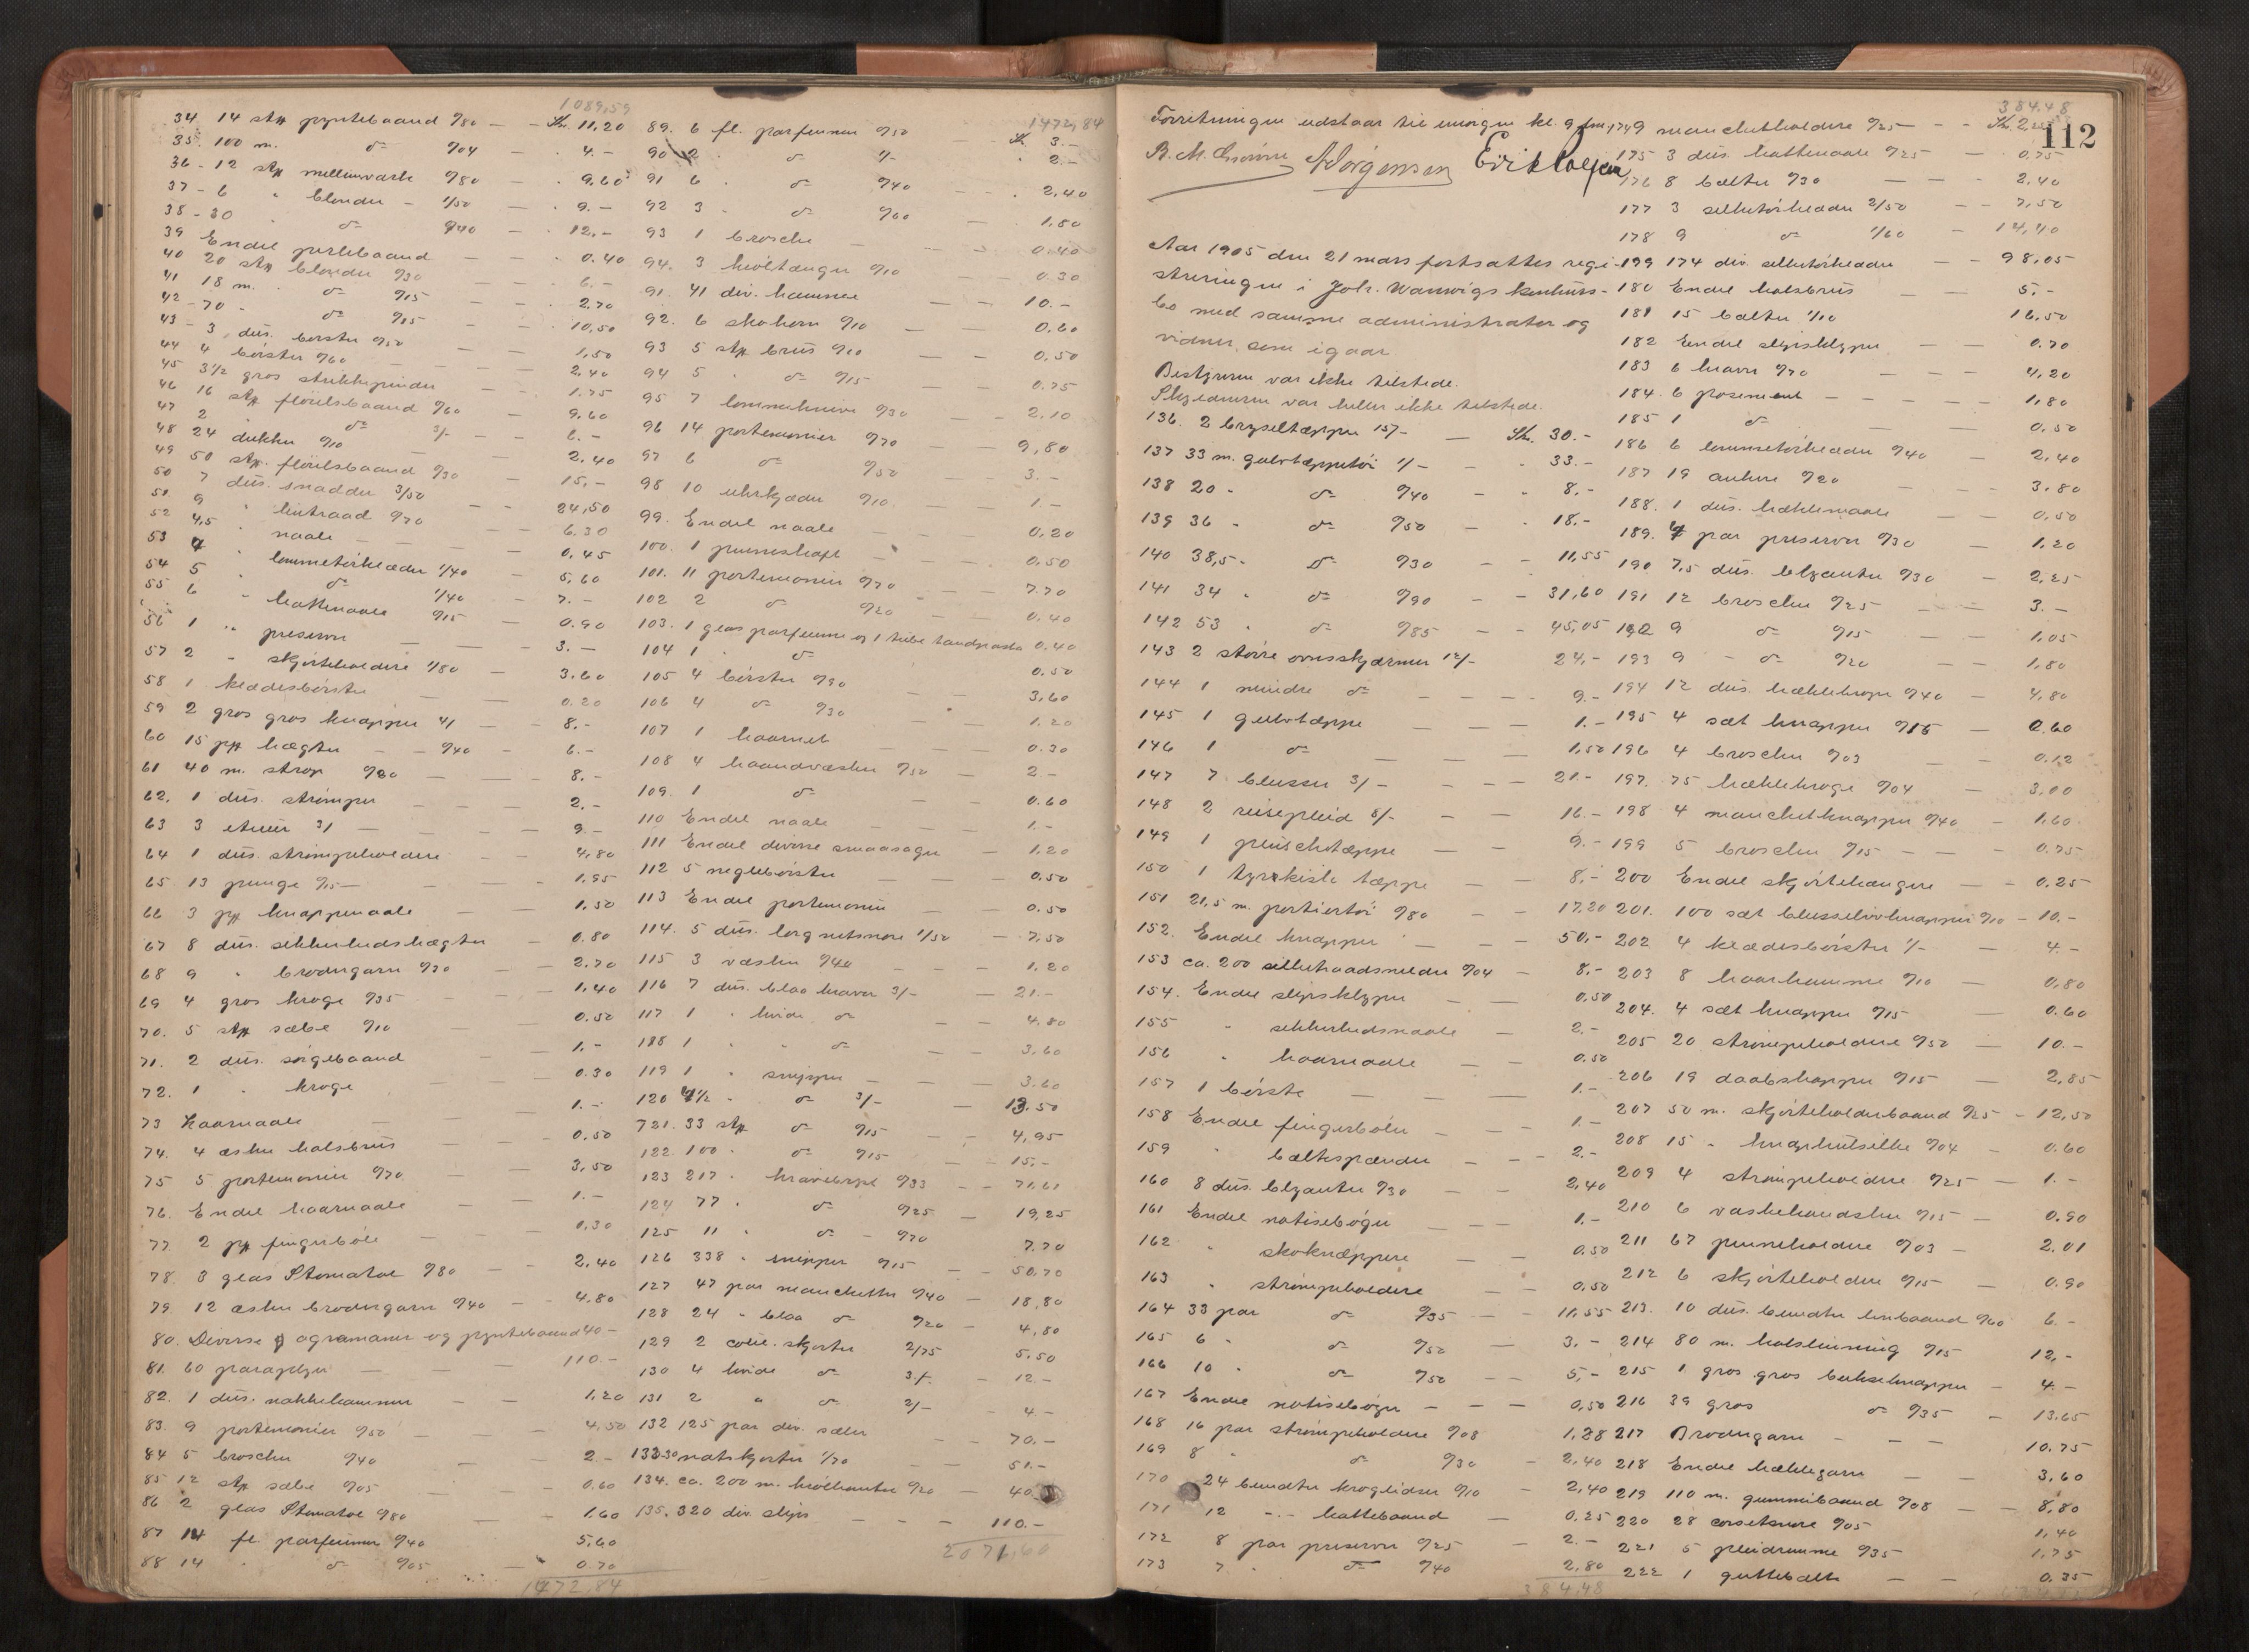 1089,59
34 14 stk pyntebaand %80 — Kr. 11,20
35 100 m. do %04 — 4.-
36 - 12 stk mellemværk %80 — 9,60
37 - 6 " blonder - 1/50 — 9.-
38 - 30 do %40 — 12,-
39 Endel perlebaand — 0.40
40 20 stk blonder %30 — 6.-
41 18 m. do %15 — 2.70
42 - 70 - do %15 — 10,50
43 - 3 dus. børster %50 — 1,50
44 4 børster %60 — 2.40
45 3 1/2 gros strikkepinder — 1.75
46 16 stk fløielsbaand %60 — 9.60
47 2 do 3/- — 6.-
48 24 dukker %10 — 2.40
49 50 stk. fløielsbaand %30 — 15,-
50 7 dus. snadder 3/50 — 24,50
51 9 " lintraad %70 — 6.30
52 4,5 " naale — 0.45
53 4 " lommetørklæder 1/40 — 5,60
54 5 " do 1/40 — 7.-
55 6 " hattenaale %15 — 0.90
56 1 " preserver — 3.-
57 2 " skjorteholdere 1/80 — 3.60
58 1 klædesbørste — 0.20
59 2 gros gros knapper 4/ — 8.-
60 15 pk hægter — %40 — 6.-
61 40 m. strop %20 — 8.-
62. 1 dus. strømper — 2.-
63 3 etuier 3/ — 9.-
64 1 dus. strømpeholdere — 4,80
65 13 punge %15 — 1.95
66 3 pk knappenaale — 1.50
67 8 dus. sikkerhedshægter — 0.80
68 9 " brodergarn %30 — 2.70
69 4 gros kroge %35 — 1,40
70. 5 stk sæbe %10 — 0.50
71. 2 dus. sørgebaand — 1.-
72. 1 " kroge — 0.30
73 Haarnaale — 1.-
74. 4 æsker halsbrus — 0.50
75 5 portemonier %70 — 3,50
76. Endel haarnaale — 1.-
77. 2 pk fingerbøle — 0,30
78. 3 glas Stomatol %80 — 2,40
79. 12 æsker brodergarn %40 — 4.80
80. Diverse agramaner og pyntebaand 40 -
81. 60 paraplyer — 110.-
82. 1 dus. nakkekammer — 1,20
83. 9 portemonier %50 — 4,50
84 5 broscher %40 — 2 -
85 12 stk sæbe %05 — 0.60
86 2 glas Stomatol %80 — 1.60
87 14 fl. parfeumer %40 5,60
88 14 " do %05 — 0.70
1472,84
1472,84
89. 6 fl. parfeumer %50 Kr. 3.-
90 2 . do 1/- . 2.-
91 6 . do %40 — . 2,40
92 3 . do %60 — 1.80
93 1 brosche — 0.40
94. 3 krøltænger %10 — 0.30
91. 41 div. kammer — 10.-
92. 6 skohorn %10 — 0.60
93 5 stk brus %10 — 0.50
94 5 . do %15 — 0.75
95 7 lommeknive %30 — 2.10
96 14 portemonier %70 — 9,80
97 6 do %50 — 3.-
98 10 uhrkjæder %10 — 1.-
99. Endel naale — 0,20
100. 1 penneskaft — 0,50
101. 11 portemonier %70 — 7.70
102 2 do %20 — 0.40
103. 1 glas parfeume og 1 tube tandpasta 0.40
104 1 . do 0.50
105 4 børster %90 — 3,60
106 4 do %30 — 1.20
107 1 haarnet — 0.30
108 4 haandvæsker %50 — 2.-
109. 1 do — 0.60
110 Endel naale — 1.-
111 Endel diverse smaasager — 1,20
112 5 neglebørster — 0.50
113 Endel portemonier — 0.50
114. 5 dus. lorgnetsnore 1/50 — 7,50
115 3 væsker %40 — 1.20
116 7 dus. blaa kraver 3/- — 21.-
117 1 " hvide do — 4,80
118 1 " " do — 3.60
119 1 " snipper — 3.60
120 4 1/2 " do 3/- — 13.50
721. 33 stk do %15 — 4,95
122 100 . do %15 — 15,-
123 217 . kravebryst %33 — 71,61
124 77 . do %25 — 19,25
125 11 . do %70 — 7.70
126 338 . snipper %15 — 50,70
127 47 par manchetter %40 — 18,80
128 24 - blaa do %20 — 4,80
129 2 coul. skjorter 2/75 5,50
130 4 hvide do 3/- — 12 -
131 2 " do 2/- — 4.-
132 125 par div. sæler — 70.-
133 30 natskjorter 1/70 — 51.-
134. ca. 200 m. krølkanter %20 — 40
135. 320 div. slips — 110.-
2071,60
Forretningen udstaar til imorgen kl. 9 fm.
Jørgensen
Aar 1905 den 21 mars fortsattes regi-
streringen i Joh. Warwigs konkurs-
bo med samme administrator og
vidner som igaar
Bestyreren var ikke tilstede.
Skyldneren var heller ikke tilstede.
136. 2 brysseltæpper 15/- — Kr. 30.-
137 33 m. gulvtæppetøi 1/- — 33.-
138 20 - do %40 — 8.-
139 36 - do %50 — 18.-
140 38,5 - do %30 — 11,55
141 34 . do %90 — 31,60
142 53 . do %85 — 45,05
143 2 større ovnsskjærmer 12/- 24,-
144 1 mindre do — 9.-
145 1 gulvtæppe — 1.-
146 1 do — 1,50
147 7 bluser 3/- — 21.-
148 2 reisepleid 8/- — 16.-
149 1 plüschtæppe — 9.-
150 1 tyrkisk tæppe — 8,-
151 21,5 m. portiertøi %80 — 17.20
152. Endel knapper — 50,-
153 ca. 200 silketraadsneder %04 — 8.-
154. Endel slipsklyper — 0,50
155 " sikkerhedsnaale — 2.-
156 " haarnaale — 0.50
157 1 børste — 1.-
158 Endel fingerbøler — 1.-
159 " beltespænder — 2.-
160 8 dus. blyanter %30 — 2,40
161 Endel notisebøger — 1.-
162 " skoknæppere — 0.50
163 " strømpeholdere — 0,50
164 33 par do %35 — 11,55
165 6 - do %50 — 3.-
166 10 . do %50 — 5,-
167 Endel notisebøger — 0,50
168 16 par strømpeholdere %08 1,28
169 8 " do %30 — 2,40
170 24 bundter kroglidser %10 — 2,40
171 12 -"- hattebaand — 0.25
172 8 par preserver %25 — 2.-
173 7 . do %40 2,80
384,48
384.48
112
174 9 manchetholdere %25 — Kr. 2,25
175 3 dus. hattenaale %25 — 0,75
176 8 belter %30 — 2.40
177 3 silketørklæder 2/50 — 7,50
178 9 do 1/60 — 14,40
199 174 div. silketørklæder — 98,05
180 Endel halsbrus — 5.-
181 15 belter 1/10 16,50
182 Endel slipsklyper — 0.70
183 6 kraver %70 — 4,20
184. 6 posement — 1,80
185 1 do — 0.50
186 6 lommetørklæder %40 — 2,40
187 19 ankere %20 — 3.80
188. 1 dus. hæklenaale — 0,50
189. 4 par preserver %30 — 1,20
190 7,5 dus. blyanter %30 — 2,25
191 12 broscher %25 — 3.-
192 9 do %15 — 1,05
193 9 - do %20 — 1,80
194 12 dus. hæklekroge %40 — 4,80
195 4 sæt knapper %15 — 0.60
196 4 broscher %03 — 0.12
197. 75 hæklekroge %04 — 3,00
198 4 manchetknapper %40 — 1,60
199 5 broscher %15 — 0.75
200 Endel skjortehængere — 0,25
201. 100 sæt bluselivknapper %10 — 10.-
202 4 klædesbørster 1/- — 4.-
203 8 haarkamme %10 — 0,80
204. 4 sæt knapper %15 — 0.60
205 20 strømpeholdere %50 — 10.-
206 19 daabshapper %15 — 2,85
207 50 m. skjorteholderbaand %25 — 12,50
208 15 - knaphulsilke %04 — 0.60
209 4 strømpeholdere %25 — 1.-
210 6 vaskehandsker %15 — 0.90
211 67 penneholdere %03 — 2.01
212 6 skjorteholdere %15 — 0.90
213. 10 dus. bundter linbaand %60 6.-
214 80 m. halslinning %15 12,-
215 1 gros gros bukseknapper — 4.-
216 39 gros do %35 — 13.65
217 Brodergarn — 10.75
218 Endel hæklegarn — 3,60
219 110 m. gummibaand %08 — 8,80
220 28 corsetsnore %05 1,40
221 5 pleidremme %35 1.75
222 1 guttebælte — 0.35